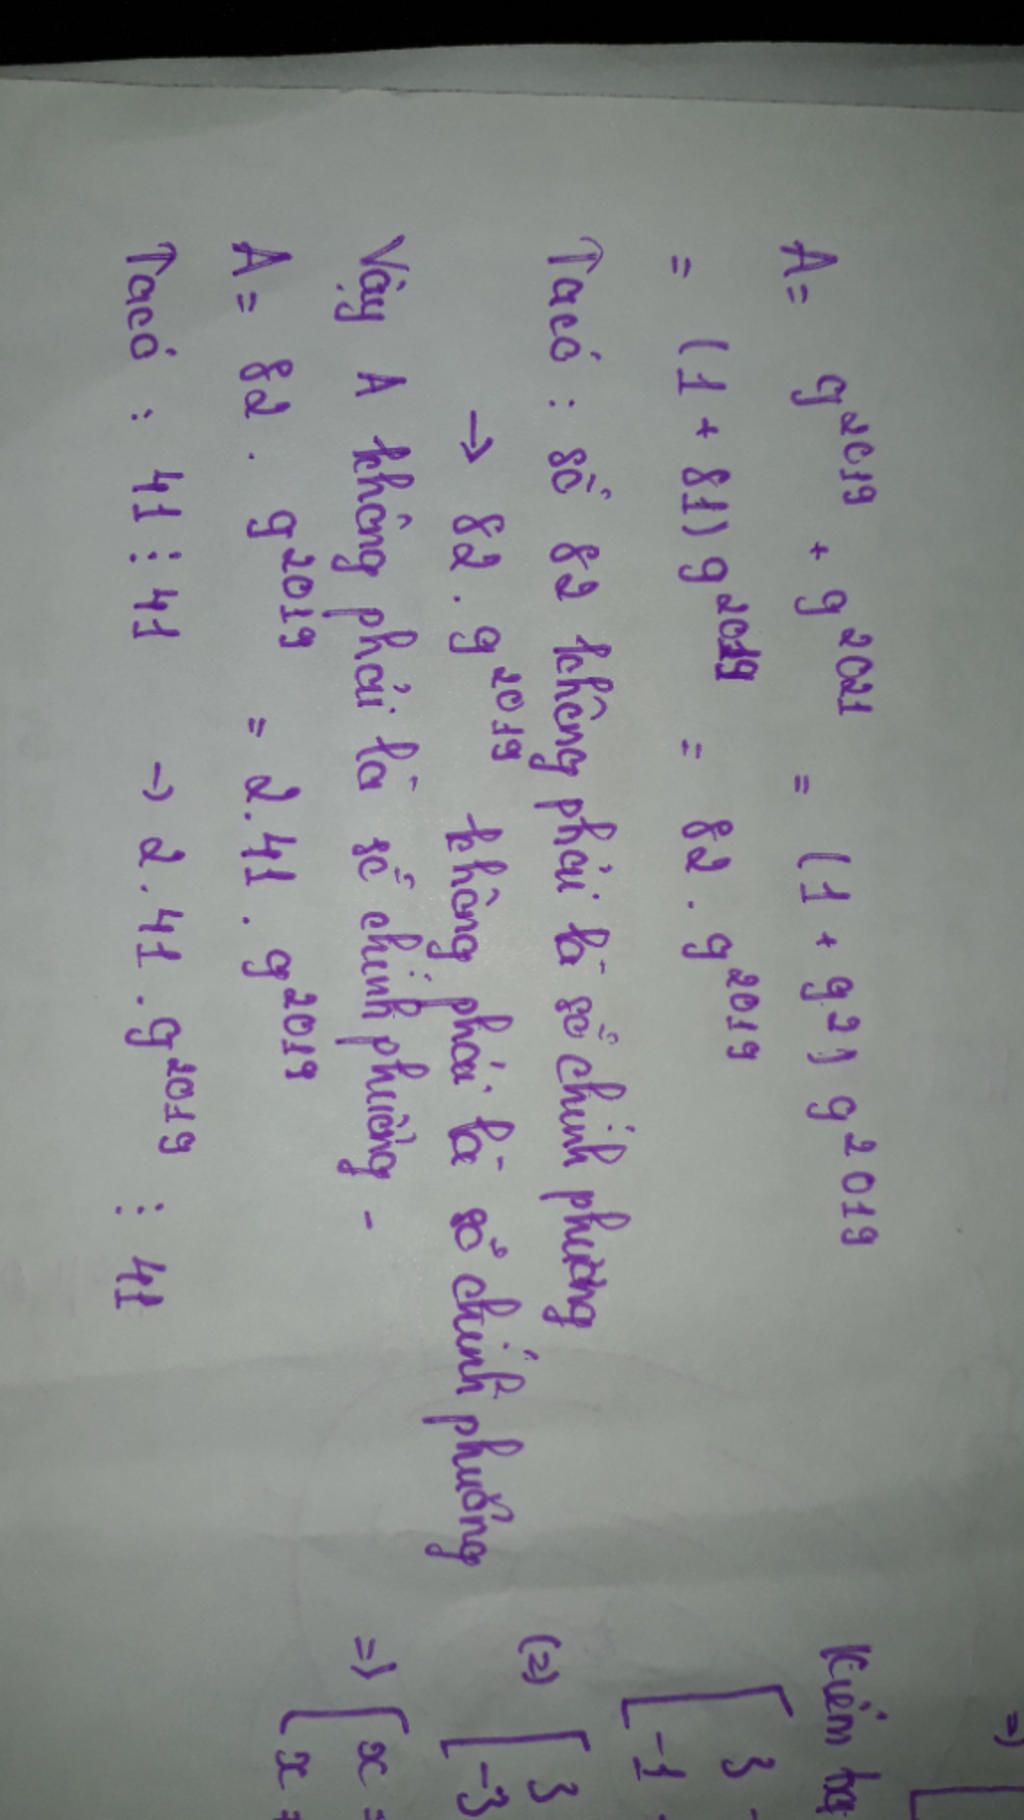 A = 9²⁰¹⁹ + 9²⁰²¹ = (1 + 9²) 9²⁰¹⁹
= (1 + 81) 9²⁰¹⁹ = 82 . 9²⁰¹⁹
Ta có : số 82 không phải là số chính phương
→ 82 . 9²⁰¹⁹ không phải là số chính phương
Vậy A không phải là số chính phương -
A = 82 . 9²⁰¹⁹ = 2.41 . 9²⁰¹⁹
Ta có : 41 ⋮ 41 → 2 . 41 . 9²⁰¹⁹ ⋮ 41
=)
[ 3
-1
(2) [ 3
-3
=) [ x =
x =